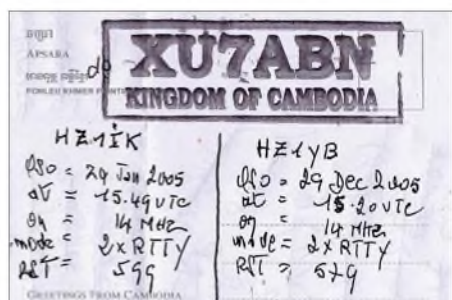 អប្សរា
APSARA
de
XU7ABN
KINGDOM OF CAMBODIA
HZ1IK
QSO = 29 Jan 2005
at = 15.49 UTC
on = 14 MHz
mode = 2 x RTTY
RST = 599
HZ1YB
QSO = 29 Dec 2005
at = 15.20 UTC
on = 14 MHz
mode = 2 x RTTY
RST = 579
GREETINGS FROM CAMBODIA